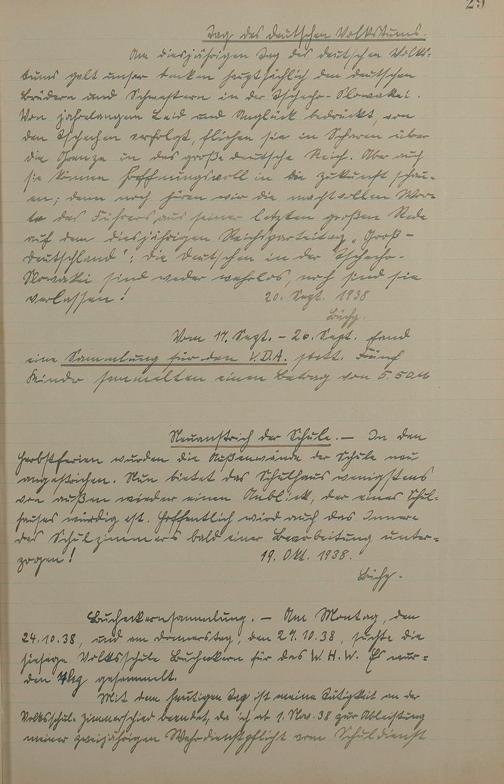 29
Tag des deutschen Volkstums.
Am diesjährigen Tag des deutschen Volks-
tums galt unser Denken hauptsächlich den deutschen
Brüdern und Schwestern in der Tschecho-Slowakei.
Von jahrelangem Leid und Unglück bedrückt, von
den Tschechen verfolgt, fliehen sie in Scharen über
die Grenze in das große deutsche Reich. Aber auch
sie können hoffnungsvoll in die Zukunft schau-
en; denn noch hören wir die machtvollen Wor-
te des Führers aus seiner letzten großen Rede
auf dem diesjährigen Reichsparteitag „Groß-
deutschland": die Deutschen in der Tschecho-
Slowakei sind weder wehrlos, noch sind sie
verlassen! 20. Sept. 1938
Vom 17. Sept. - 20. Sept. fand
eine Sammlung für den V.D.A. statt. Fünf
Kinder sammelten einen Betrag von 5.50 M
Neuanstrich der Schule. — In den
Herbstferien wurden die Außenwände der Schule neu
angestrichen. Nun bietet das Schulhaus wenigstens
von außen wieder einen Anblick, der eines Schul-
hauses würdig ist. Hoffentlich wird auch das Innere
des Schulzimmers bald einer Bearbeitung unter-
zogen! 19. Okt. 1938.
Bucheckernsammlung. — Am Montag, den
24.10.38, und am Donnerstag, den 27.10.38, suchte die
hiesige Volksschule Bucheckern für das W.H.W. Es wur-
den kg gesammelt.
Mit dem heutigen Tag ist meine Tätigkeit an der
Volksschule Zimmerschied beendet, da ich ab 1. Nov. 38 zur Ableistung
meiner zweijährigen Wehrdienstpflicht vom Schuldienst